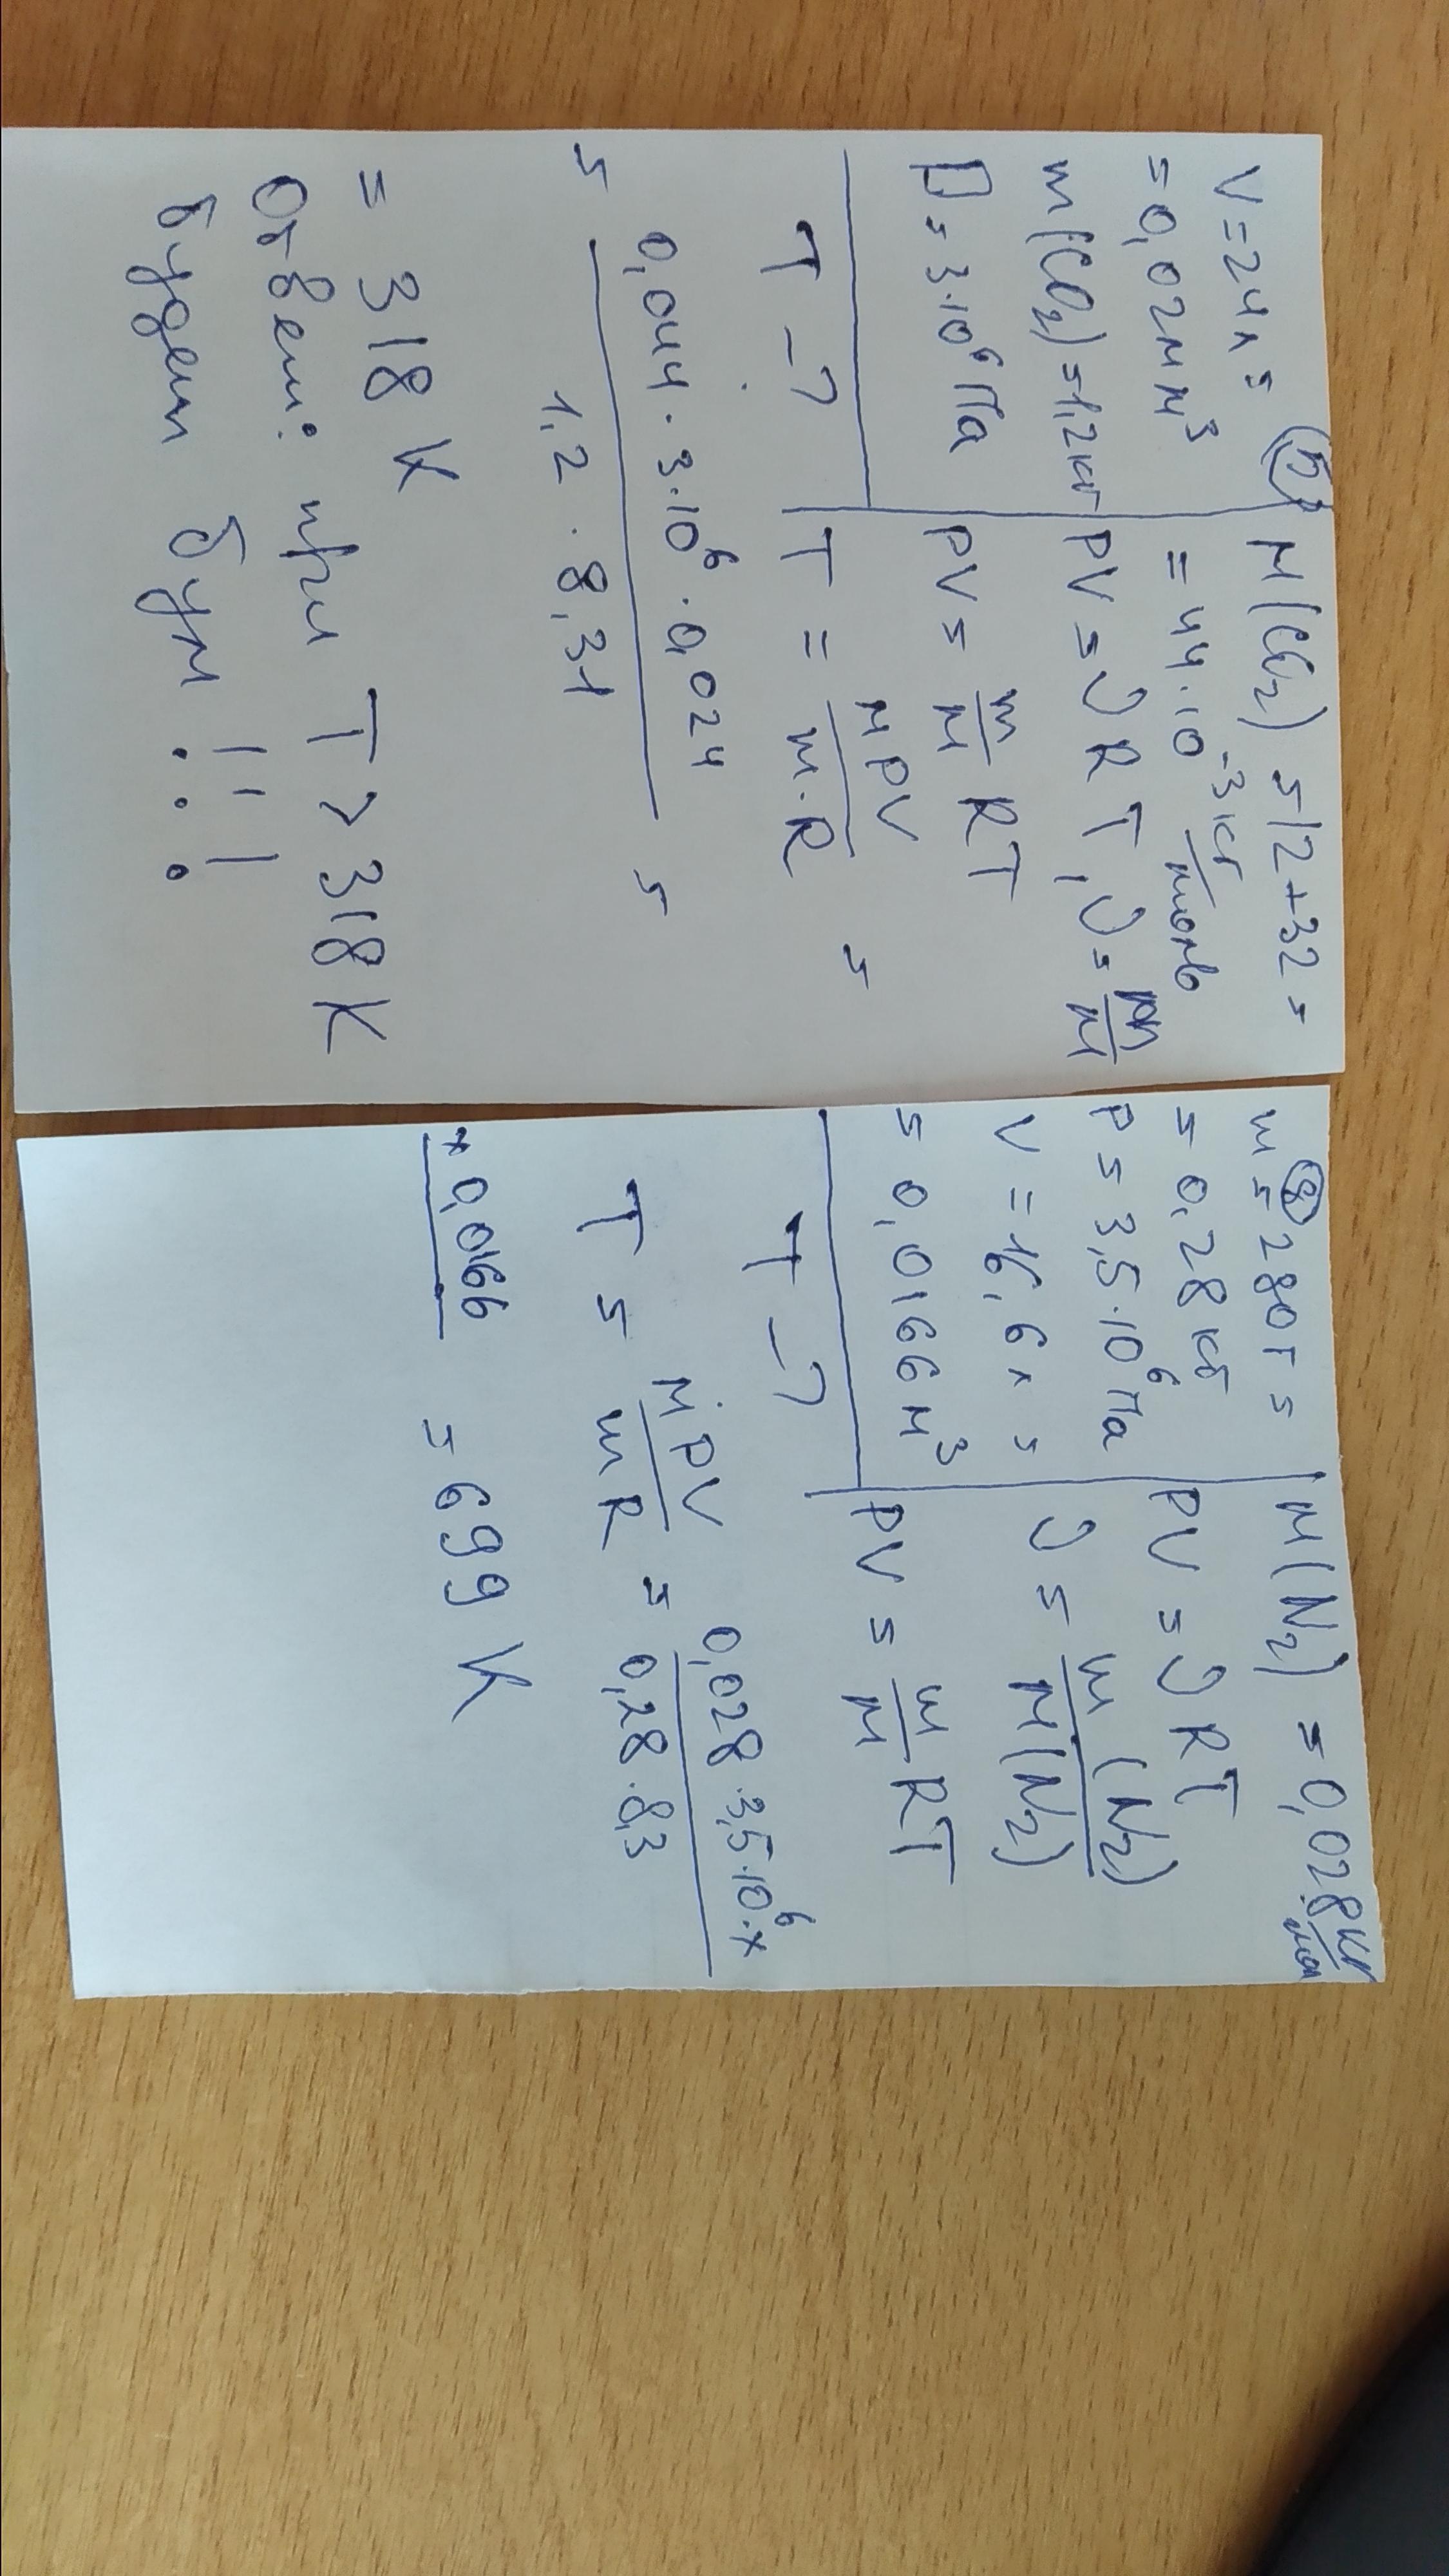 (5)
V = 24 л =
= 0,024 м³
m(CO₂) = 1,2 кг
P = 3·10⁶ Па
T – ?
M(CO₂) = 12+32 =
= 44·10⁻³ кг/моль
PV = νRT, ν = m/M
PV = m/M RT
T = MPV/m·R =
= 0,044 · 3·10⁶ · 0,024 / 1,2 · 8,31 =
= 318 K
Ответ: при T > 318 K
будет бум !!!
(8)
m = 280 г =
= 0,28 кг
P = 3,5·10⁶ Па
V = 16,6 л =
= 0,0166 м³
T – ?
M(N₂) = 0,028 кг/мол
PV = νRT
ν = m(N₂)/M(N₂)
PV = m/M RT
T = MPV/mR = 0,028·3,5·10⁶·x / 0,28·8,3
x 0,0166 = 699 K